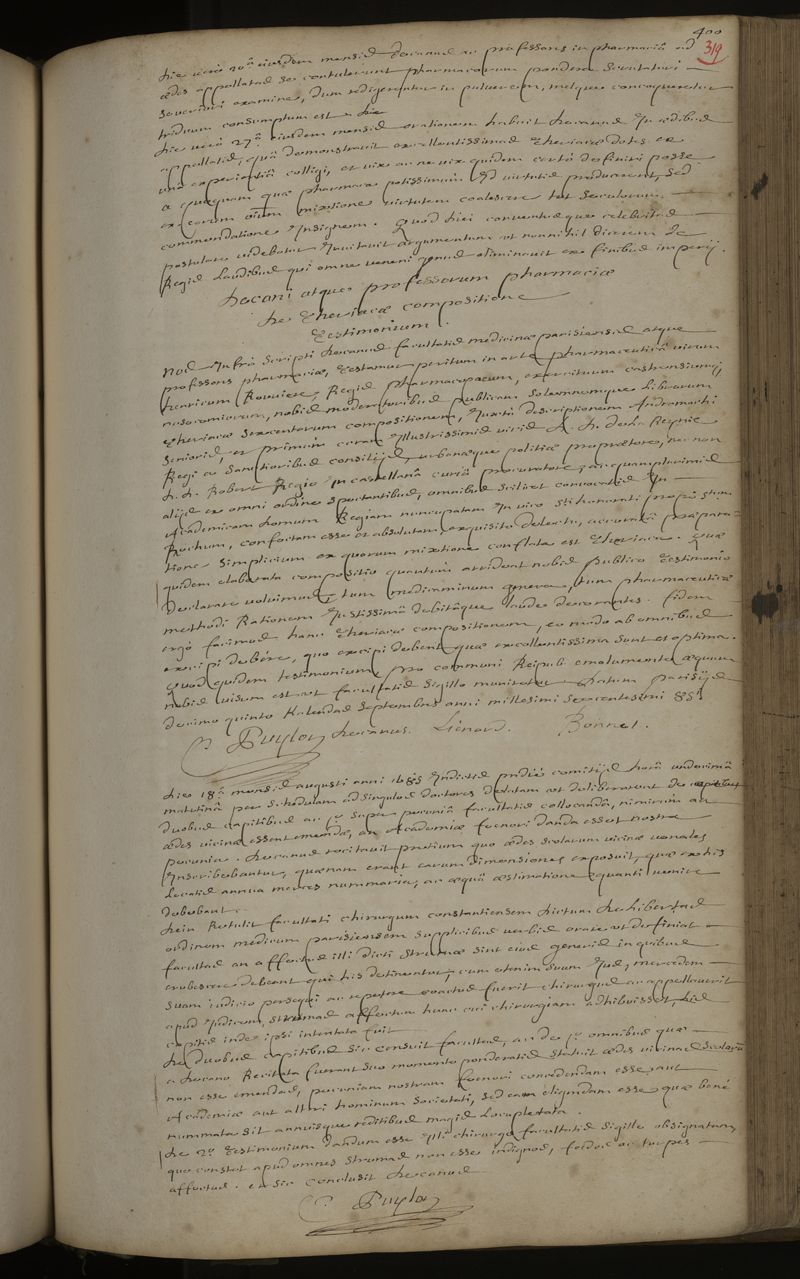 400
319
die vero 20a eiusdem mensis Decanus ac professores in pharmaciâ ad
ædes appellatas se contulerunt pharmacorum pondera scrutaturi
severiori examine, dum redigerentur in pulverem, melque concoqueretur
triduum consumptum est
die vero 27a eiusdem mensis orationem habuit Decanus in ædibus
appellatis, quâ demonstravit excellentissimas Theriacæ dotes ex
unâ experientiâ colligi, et vix ac ne vix quidem certò definiri posse
a quoquam quæ pharmaca potissimùm virtutis producerent, sed
ex eorum omnium mixtione virtutem coalescere tot sæculorum
commendatione insignem. Quod diei conventusque celebritas
postulare videbatur invitavit argumentum ut nonnihil diceret de
Regis laudibus qui omne veneni genus eliminavit ex finibus imperij.
Decani atque professorum pharmaciæ
de Theriacæ compositione
Testimonium.
Nos infrà scripti Decanus facultatis medicinæ parisiensis atque
professores pharmaciæ, testamur peritum in arte pharmaceuticâ virum
henricum Rouviere, Regis pharmacopæum, exercituum castrensiumq;
nosocomiorum, nobis moderatoribus publicam solemnemque librarum
Theriacæ sexcentarum compositionem, juxtà descriptionem Andromachi
senioris, et primùm coram illustrissimis viris D. D. de la Reynie
Regi a sanctioribus consilijs, urbanæque politiæ proprætore, nec non
D. D. Robert Regio in castellanâ curiâ procuratore, ac quamplurimis
alijs ex omni ordine spectantibus, omnibus scilicet convocatis in
Academicam domum Regiam nuncupatam in vico sti honorati propè stum
Rochum, confectam esse et absolutam, exquisito delectu, accuratâ præpara=
tione simplicium ex quorum mixtione conflata est Theriaca. Quæ
quidem elaborata compositio quantùm arriderit nobis publico testimonio
declarare voluimus, tum medicaminum genera, tum pharmaceuticæ
methodi rationem justissimâ debitâque laude decorantes. fidem
ergò facimus hanc Theriacæ compositionem, eo modo ab omnibus
excipi debere, quo excipi debent quæ excellentissima sunt et optima.
Quod quidem testimonium pro communi Reipub. emolumento æquum
nobis visum est ut facultatis sigillo muniretur. Datum Parisijs
decimo quinto Kalendas septembris anni millesimi sexcentesimi 85i
C. Puylon Decanus. Lienard. Bonnet.
die 18a mensis augusti anni 1685 indictis pridiè comitijs horâ undecimâ
matutinâ per schedulam ad singulos doctores delatam ut deliberarent de
duobus capitibus ac 1o super pecuniâ facultatis collocandâ, nimirùm an
ædes vicinæ essent emendæ, an Academiæ fœnori danda esset nostra
pecunia. Decanus recitavit pretium quo ædes scolarum vicinæ venales
inscribebantur, quænam erant earum dimensiones exposuit, quæ ex his
locatis annua merces nummaria, ac æquâ æstimatione quanti venire
debebant.
Dein retulit facultati chirurgum constantiensem dictum de hibertas
ordinem medicum parisiensem supplicibus verbis orare ut definiat
facultas an affectus illi dicti strumæ sint eius generis in quibus
erubescere debeant qui his detinentur, cum etenim suum jus, mercedem
suam judicio persequi ac repetere coactus fuerit chirurgus ac appellaverit
apud judicem, strumas affectum hunc cui chirurgiam adhibuisset, lis
capitis inde ipsi intentata fuit
De duobus capitibus sic censuit facultas, ac de 1o omnibus quæ
a Decano recitata fuerant suo momento ponderatis statuit ædes vicinas scolarum
non esse emendas, pecuniam nostram fœnori concedendam esse, aut
Academiæ aut alteri hominum societati, sed eam eligendam esse quæ benè
nummata sit annuisque reditibus magis locupletata.
De 2o testimonium dandum esse chirurgo facultatis sigillo obsignatum
quo constet apud omnes strumas non esse indignos, fœdos ac turpes
affectus. et sic conclusit Decanus
C. Puylon